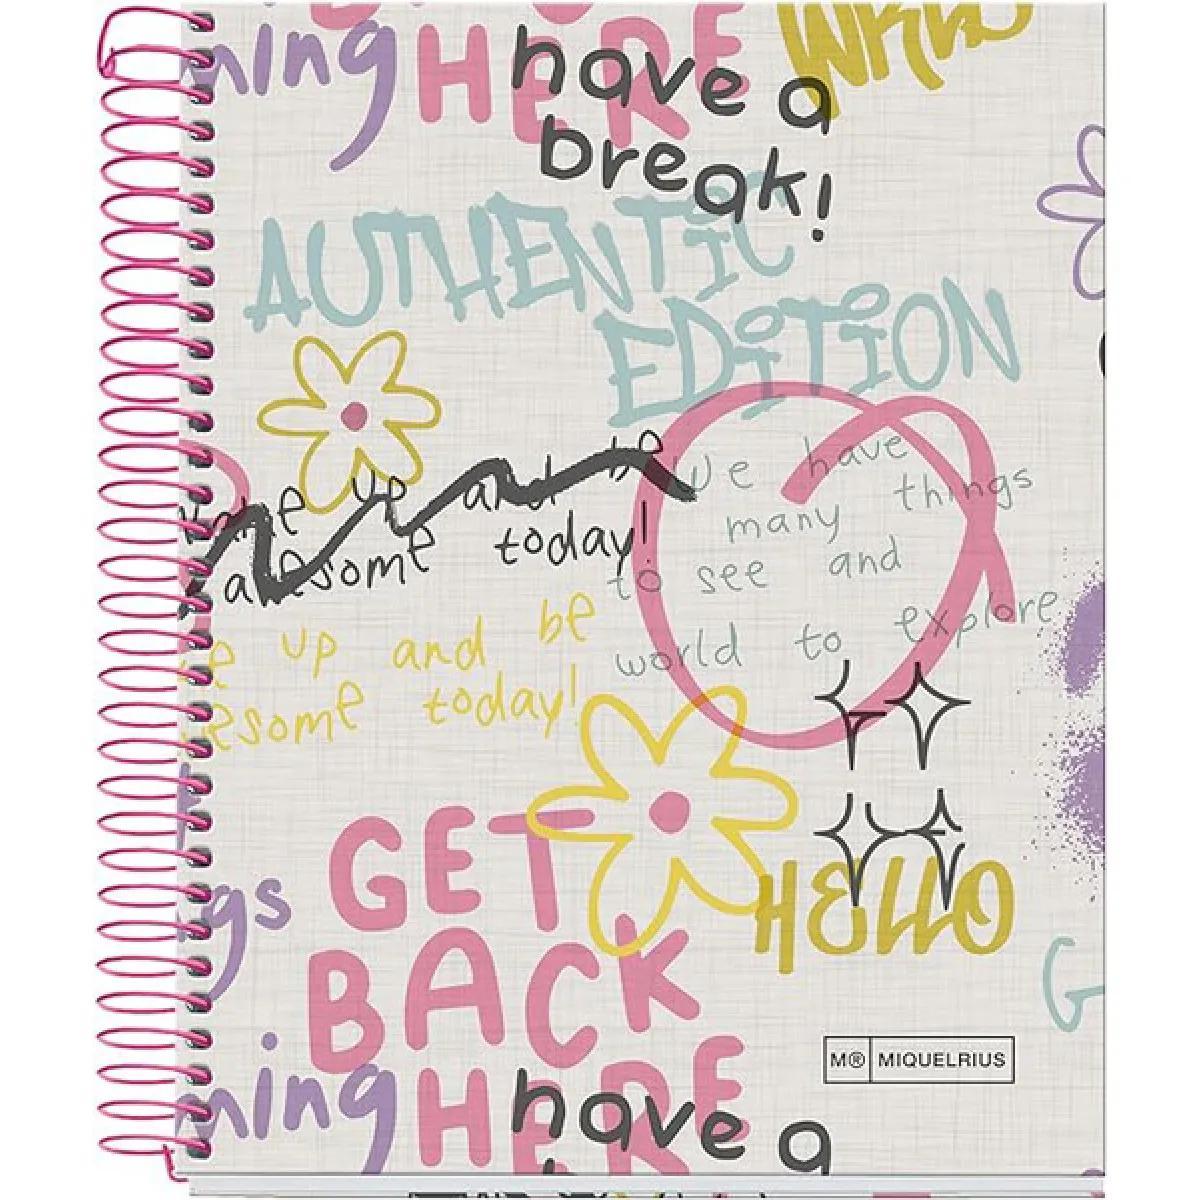 ning
HERE
have a
break!
AUTHENTIC
EDITION
up and be
awesome today!
we have
many things
to see and
world to explore
up and be
esome today!
GET
BACK
HERE
HELLO
gs
ning
have a
G
M® MIQUELRIUS